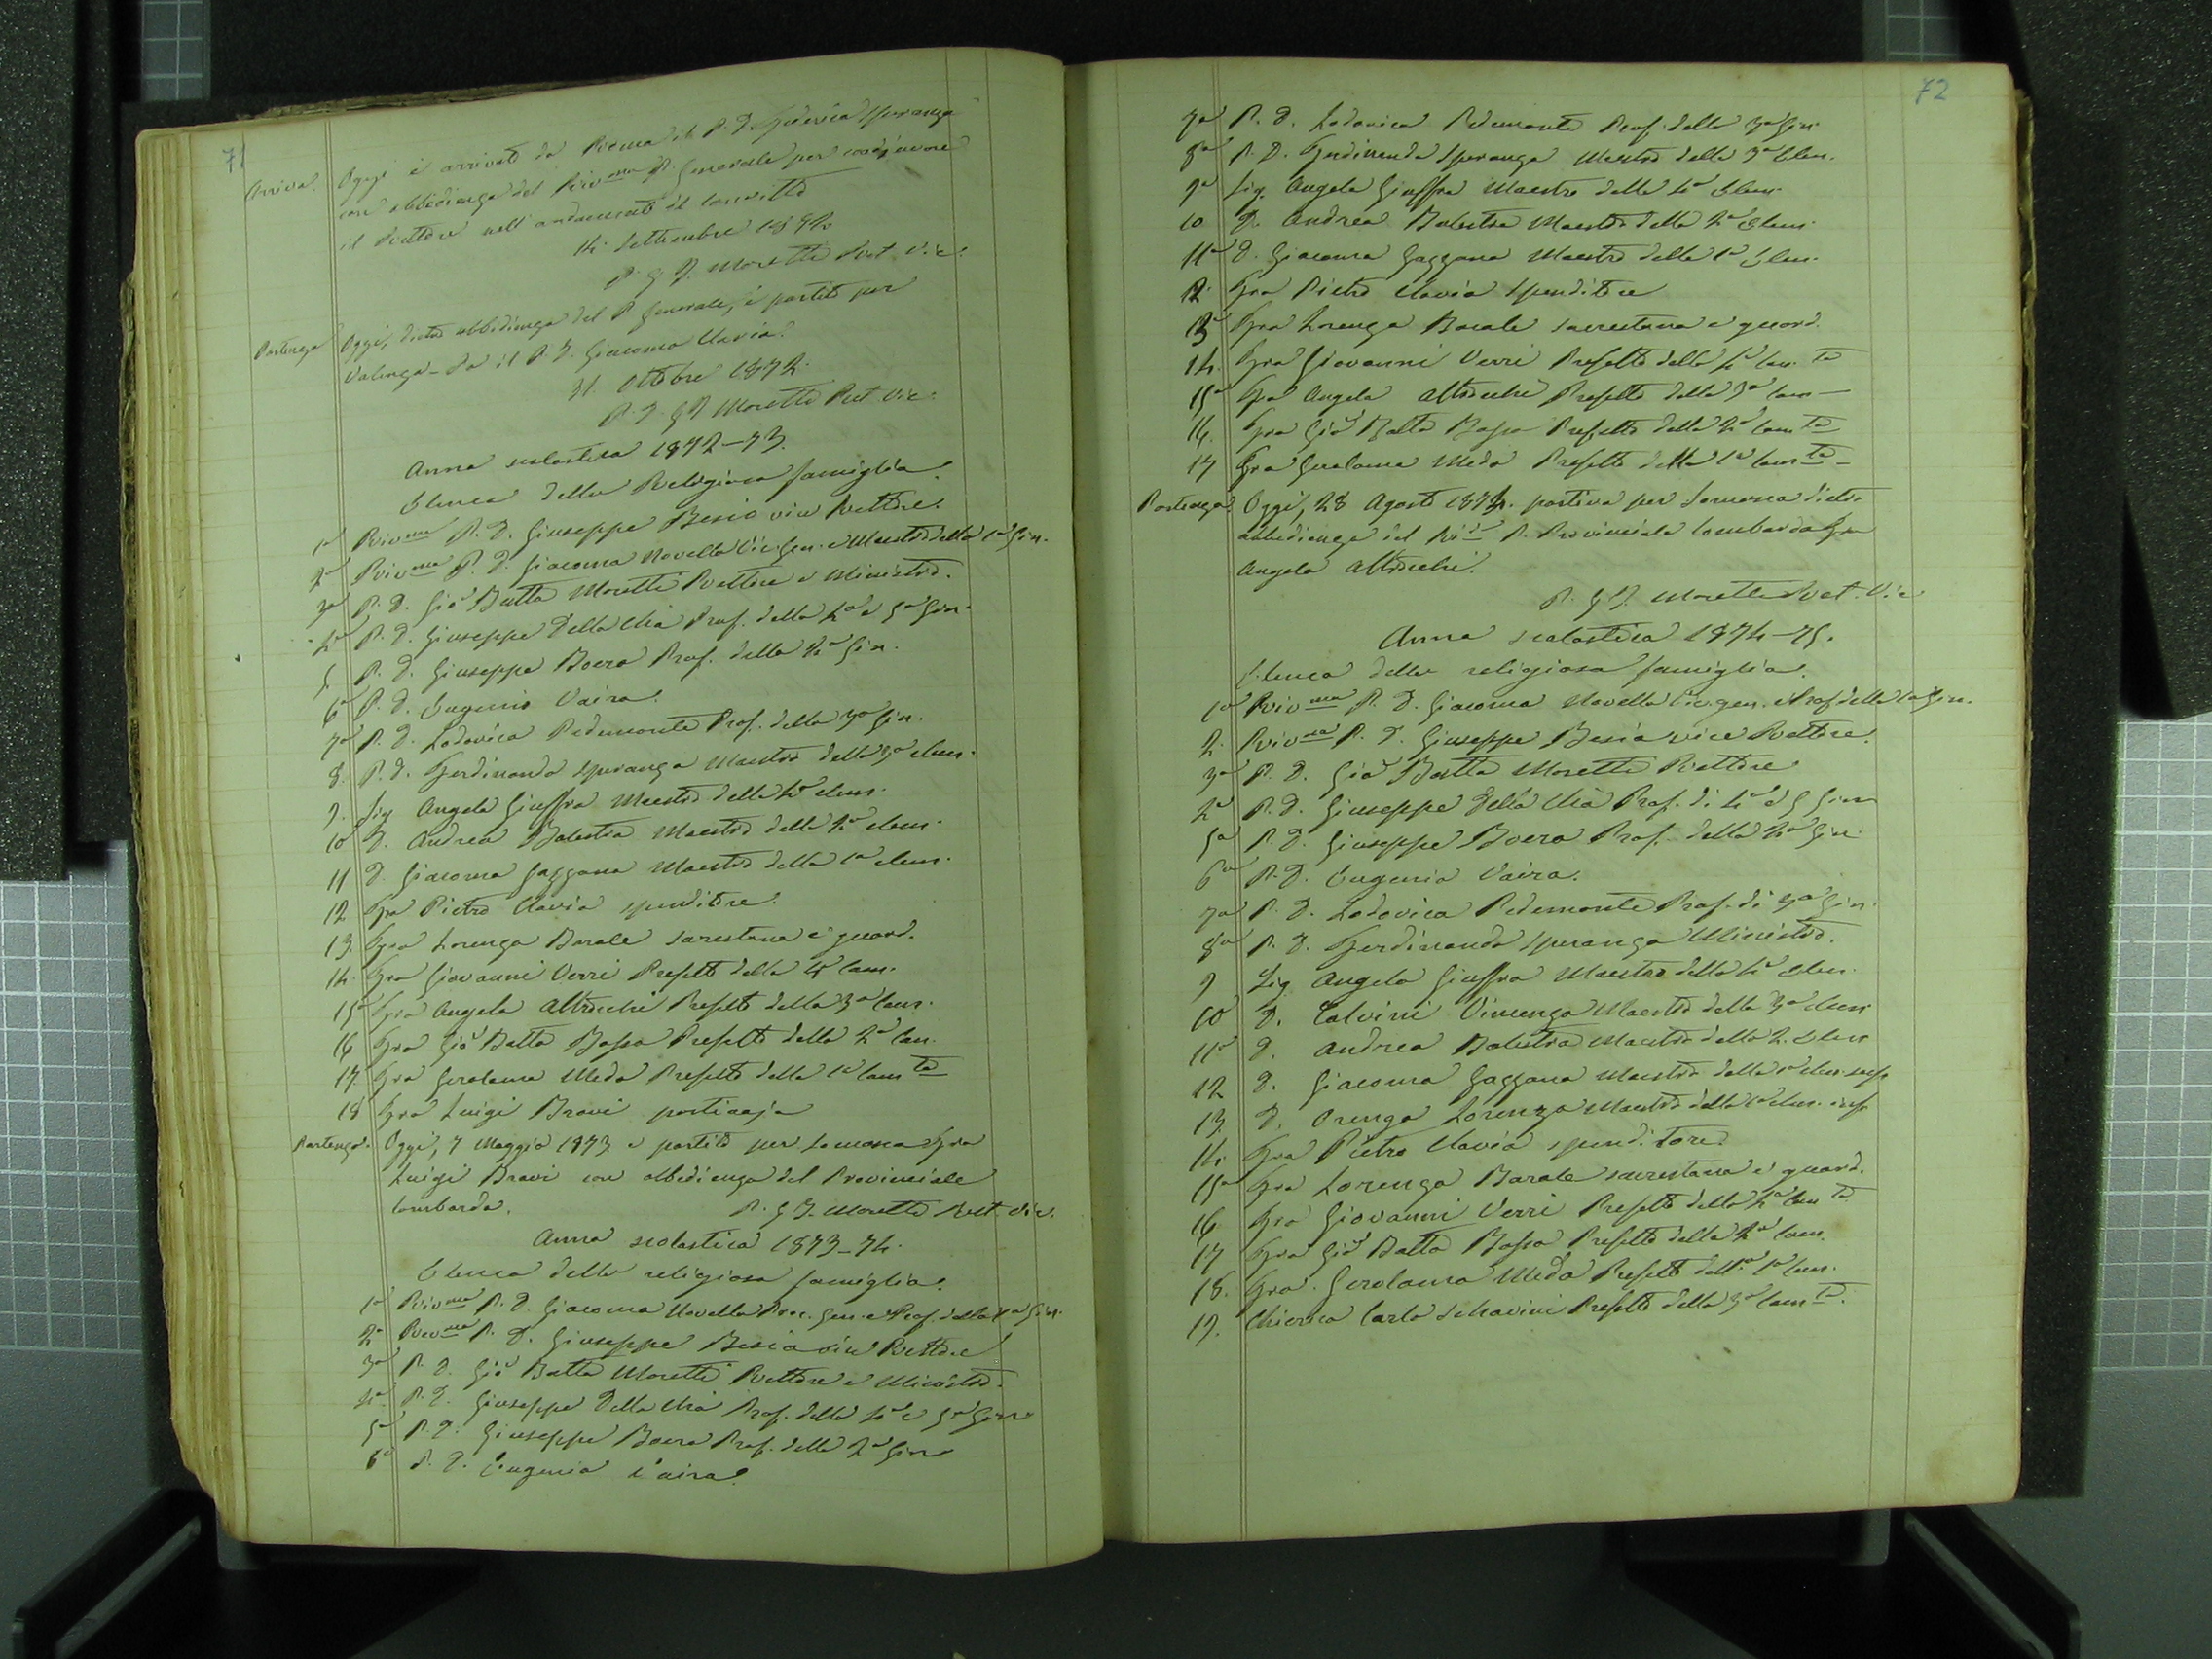 71
Arrivo. Oggi è arrivato da Roma il P. D. Federico Speranza
con obbedienza del Rev.mo P. Generale per coadjuvare
il Rettore nell'andamento del Convitto
14 Settembre 1872
P. G. B. Moretti Ret. Vic.
Partenza Oggi, dietro obbedienza del P. Generale, è partito per
Valenza-Po il P. D. Giacomo Clavio.
31. Ottobre 1872.
P. D. G. B. Moretti Ret. Vic.
Anno scolastico 1872-73.
Elenco della Religiosa famiglia.
1o Rev.mo P. D. Giuseppe Besio vice Rettore.
2o Rev.mo P. D. Giacomo Novella Vic. Gen. e Maestro della 1a Gin.
3o P. D. Gio Batta Moretti Rettore e Ministro.
4o P. D. Giuseppe Della Chià Prof. della 4a e 5a Gin.
5 P. D. Giuseppe Boero Prof. della 2a Gin.
6o P. D. Eugenio Vaira.
7o P. D. Lodovico Pedemonte Prof. della 3a Gin.
8. P. D. Ferdinando Speranza Maestro della 3a elem.
9. Sig Angelo Giuffra Maestro della 4a elem.
10 D. Andrea Balestra Maestro della 2a elem.
11 D. Giacomo Gazzano Maestro della 1a elem.
12 Fra Pietro Clavio spenditore.
13. Fra Lorenzo Borale sacrestano e guard.
14. Fra Giovanni Verri Prefetto della 4a Cam.
15o Fra Angelo Altrocchi Prefetto della 3a Cam.
16 Fra Gio Batta Bosso Prefetto della 2a Cam.
17. Fra Gerolamo Meda Prefetto della 1a Cam.ta
18 Fra Luigi Bravi portinajo
Partenza. Oggi, 7 Maggio 1873 è partito per Somasca Fra
Luigi Bravi con obbedienza del Provinciale
Lombardo. P. G. B. Moretti Ret. Vic.
Anno scolastico 1873-74.
Elenco della religiosa famiglia.
1o Rev.mo P. D. Giacomo Novella Proc. Gen. e Prof. della 1a Gin.
2o Rev.mo P. D. Giuseppe Besio vice Rettore
3o P. D. Gio Batta Moretti Rettore e Ministro.
4o P. D. Giuseppe Della Chià Prof. della 4a e 5a Gin
5o P. D. Giuseppe Boero Prof. della 2a Gin
6o P. D. Eugenio Vaira.
72
7o P. D. Lodovico Pedemonte Prof. della 3a Gin.
8o P. D. Ferdinando Speranza Maestro della 3a Elem.
9o Sig. Angelo Giuffra Maestro della 4a Elem.
10 D. Andrea Balestra Maestro della 2a Elem.
11o D. Giacomo Gazzano Maestro della 1a Elem.
12. Fra Pietro Clavio Spenditore
13o Fra Lorenzo Borale sacrestano e guard.
14. Fra Giovanni Verri Prefetto della 4a Cam.ta
15o Fra Angelo Altrocchi Prefetto della 3a Cam
16. Fra Gio Batta Bosso Prefetto della 2a Cam.ta
17 Fra Gerolamo Meda Prefetto della 1a Cam.ta
Partenza. Oggi, 28 Agosto 1874. partiva per Somasca dietro
obbedienza del P. Provinciale Lombardo Fra
Angelo Altrocchi.
P. G. B. Moretti Ret. Vic
Anno scolastico 1874-75.
Elenco della religiosa famiglia.
1o Rev.mo P. D. Giacomo Novella Vic. gen. e Prof. della 1a Gin.
2. Rev.mo P. D. Giuseppe Besio vice Rettore.
3o P. D. Gio Batta Moretti Rettore
4o P. D. Giuseppe Della Chià Prof. di 4a e 5 Gin
5o P. D. Giuseppe Boero Prof. della 2a Gin.
6o P. D. Eugenio Vaira.
7o P. D. Lodovico Pedemonte Prof. di 3a Gin.
8o P. D. Ferdinando Speranza Ministro.
9 Sig Angelo Giuffra Maestro della 4a Elem.
10 D. Calvini Vincenzo Maestro della 3a elem
11o D. Andrea Balestra Maestro della 2. Elem
12 D. Giacomo Gazzano Maestro della 1a elem. sup.
13. D. Orengo Lorenzo Maestro della 1a elem. inf.
14. Fra Pietro Clavio spenditore.
15o Fra Lorenzo Borale sacrestano e guard.
16 Fra Giovanni Verri Prefetto della 4a Cam.ta
17 Fra Gio Batta Bosso Prefetto della 2a Cam.
18. Fra Gerolamo Meda Prefetto della 1a Cam.
19. Chierico Carlo Schiavini Prefetto della 3a Cam.ta.